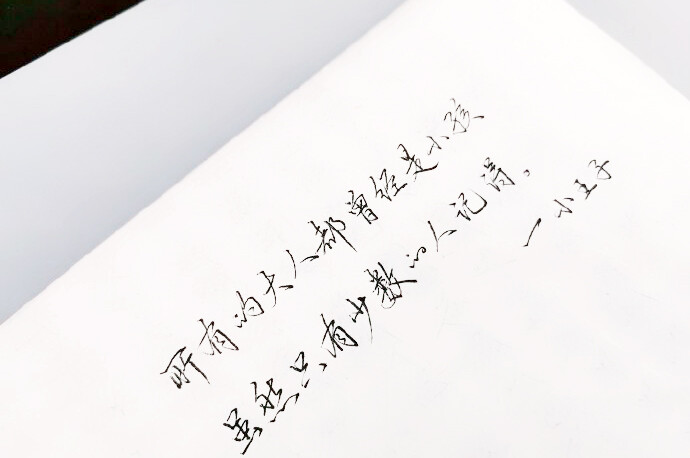 所有的大人都曾经是小孩
虽然只有少数的人记得。
—小王子